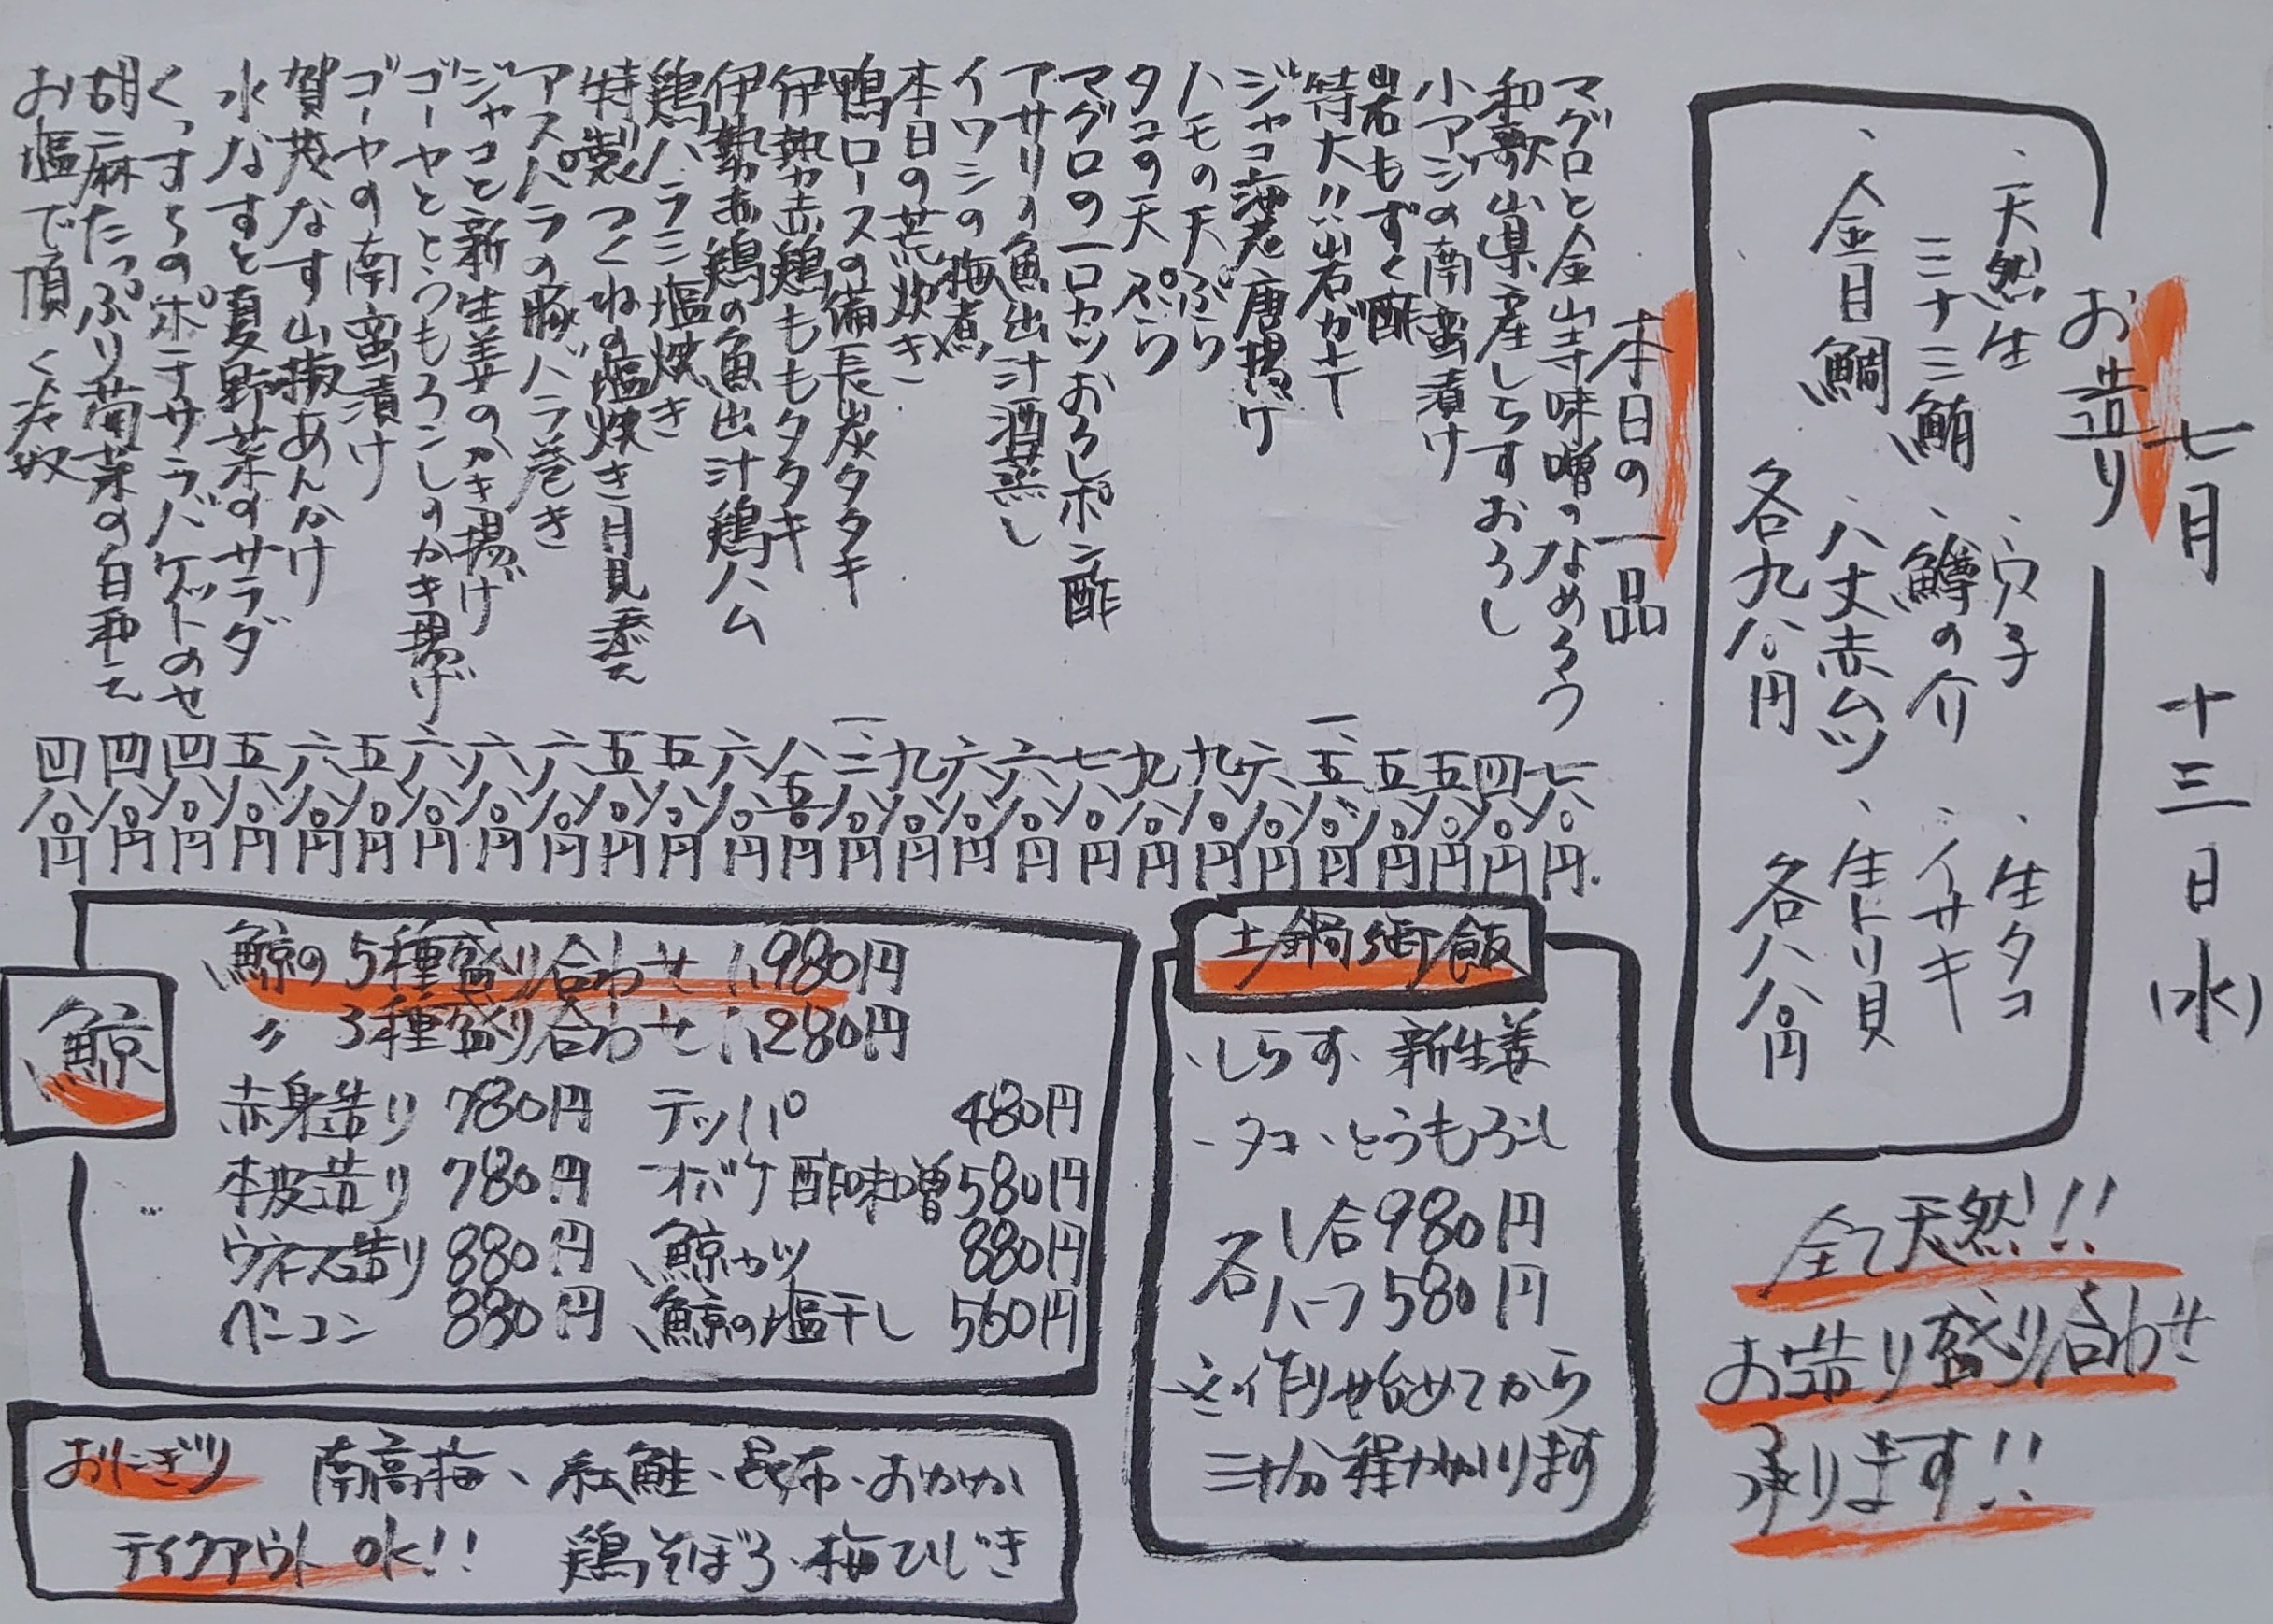 七月 十三日(水)
お造り
・天然生 ・穴子 ・生タコ
ミナミ鮪 ・鱒の介 ・イサキ
・金目鯛 ・八丈赤ムツ ・生トリ貝
各九八〇円 各八八〇円
全て天然!!
お造り盛り合わせ
承ります!!
本日の一品
マグロと金山寺味噌のなめろう 七八〇円
和歌山県産しらすおろし 四八〇円
小アジの南蛮漬け 五八〇円
岩もずく酢 五八〇円
特大!!岩ガキ 一、五八〇円
ジャコ海老唐揚げ 六八〇円
ハモの天ぷら 九八〇円
タコの天ぷら 九八〇円
マグロの一口カツおろしポン酢 七八〇円
アサリの魚出汁酒蒸し 六八〇円
イワシの梅煮 六八〇円
本日の荒炊き 九八〇円
鴨ロースの備長炭タタキ 一、二八〇円
伊勢赤鶏ももタタキ 八五〇円
伊勢赤鶏の魚出汁鶏ハム 六八〇円
鶏ハラミ塩焼き 五八〇円
特製つくねの塩焼き月見添え 五八〇円
アスパラの豚バラ巻き 六八〇円
ジャコと新生姜のかき揚げ 六八〇円
ゴーヤととうもろこしのかき揚げ 六八〇円
ゴーヤの南蛮漬け 五八〇円
賀茂なす山椒あんかけ 六八〇円
水なすと夏野菜のサラダ 五八〇円
くっすちのポテサラバゲットのせ 四八〇円
胡麻たっぷり菊菜の白和え 四八〇円
お塩で頂く冷奴 四八〇円
土鍋御飯
・しらす、新生姜
・タコ、とうもろこし
各 1合980円
各 ハーフ580円
※作り始めてから
三十分程かかります
鯨
鯨の5種盛り合わせ 1,980円
〃 3種盛り合わせ 1,280円
赤身造り 780円 テッパ 480円
本皮造り 780円 オバケ酢味噌 580円
ウネス造り 880円 鯨カツ 880円
ベーコン 880円 鯨の塩干し 560円
おにぎり 南高梅、紅鮭、昆布、おかか
テイクアウトOK!! 鶏そぼろ、梅ひじき